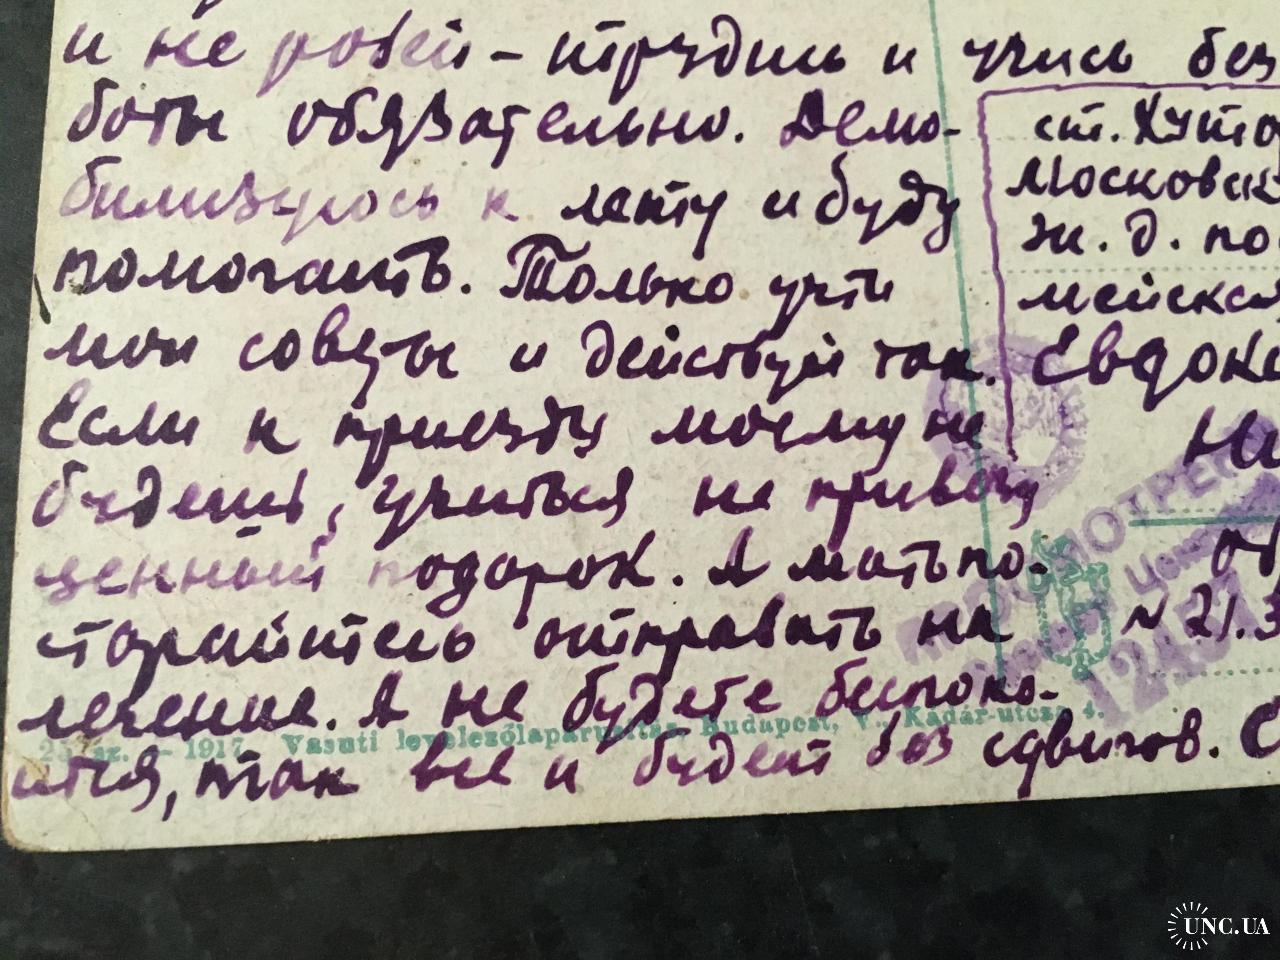 и не робей - трудись и учись без
боты обязательно. Демо-
билизуюсь к лету и буду
помогать. Только учти
мои советы и действуй так.
Если к приезду моему не
будешь учиться не привезу
ценный подарок. А мать по-
старайтесь отправить на
лечение. А не будете беспоко-
ится, так все и будет без сдвигов. С
ст. Хуто
Московск
ж. д. по
мейская
Евдок
Ни
От
N 21.3
ПРОСМОТРЕ
12437
25. sz. - 1917. Vasuti levelezőlapárusítás, Budapest, V., Kádár-utcza 4.
UNC.UA